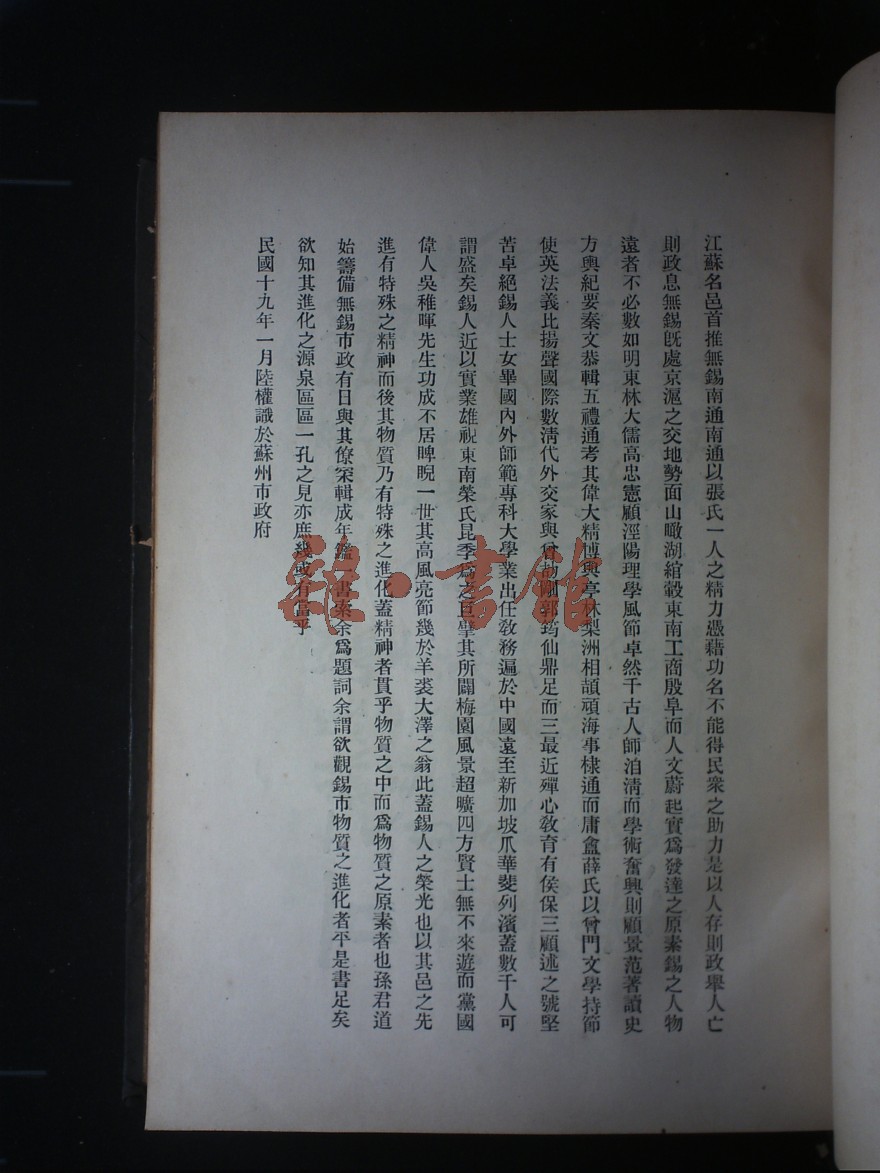 江蘇名邑首推無錫南通南通以張氏一人之精力憑藉功名不能得民衆之助力是以人存則政舉人亡
則政息無錫旣處京滬之交地勢面山瞰湖綰轂東南工商殷阜而人文蔚起實爲發達之原素錫之人物
遠者不必數如明東林大儒高忠憲顧涇陽理學風節卓然千古人師洎淸而學術奮興則顧景范著讀史
方輿紀要秦文恭輯五禮通考其偉大精博與亭林梨洲相頡頏海事棣通而庸盦薛氏以曾門文學持節
使英法義比揚聲國際數淸代外交家與曾劼剛郭筠仙鼎足而三最近殫心敎育有侯保三顧述之號堅
苦卓絕錫人士女畢國內外師範專科大學業出任敎務遍於中國遠至新加坡爪華斐列濱蓋數千人可
謂盛矣錫人近以實業雄視東南榮氏昆季爲之巨擘其所闢梅園風景超曠四方賢士無不來遊而黨國
偉人吳稚暉先生功成不居睥睨一世其高風亮節幾於羊裘大澤之翁此蓋錫人之榮光也以其邑之先
進有特殊之精神而後其物質乃有特殊之進化蓋精神者貫乎物質之中而爲物質之原素者也孫君道
始籌備無錫市政有日與其僚寀輯成年鑑一書索余爲題詞余謂欲觀錫市物質之進化者乎是書足矣
欲知其進化之源泉區區一孔之見亦庶幾或有當乎
民國十九年一月陸權識於蘇州市政府
雒·書館